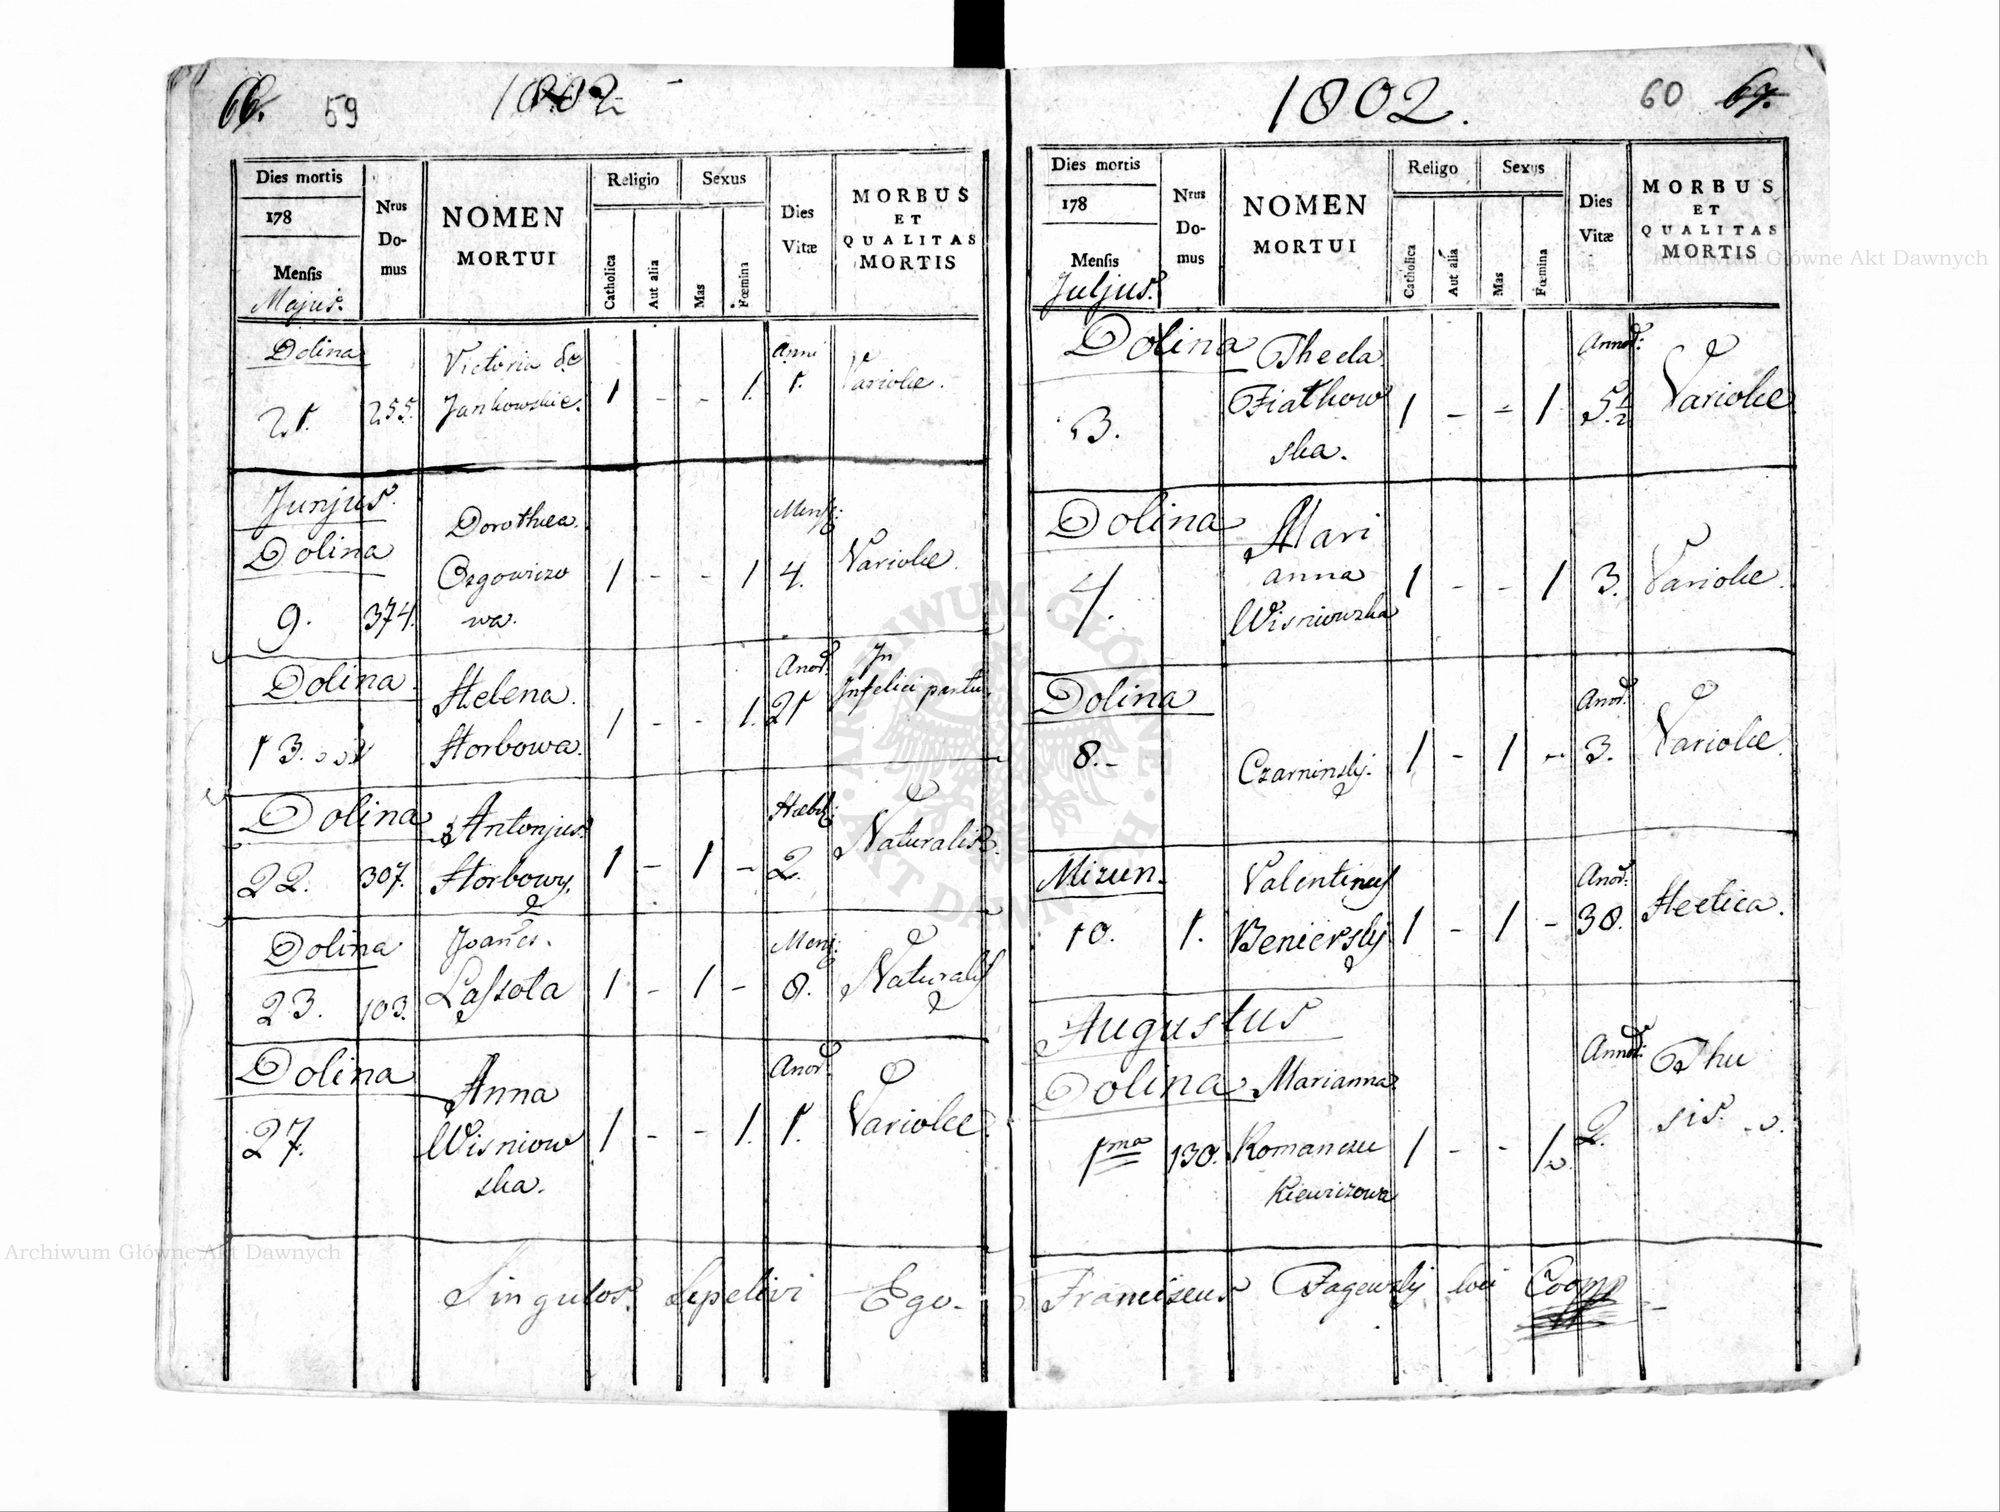 66. 59 1802
Dies mortis
178
Mensis
Majus.
Nrus Do- mus
NOMEN
MORTUI
Religio
Catholica
Aut alia
Sexus
Mas
Fœmina
Dies
Vitæ
MORBUS
ET
QUALITAS
MORTIS
Dolina
21. 255. Victoria de
Jankowskie. 1 - - 1. Anni
1. Variolæ.
Junjus.
Dolina
9. 374. Dorothea
wa. 1 - - 1 Mens:
4. Variolæ.
Dolina
13. Helena
Horbowa. 1 - - 1. Anor:
21 In
Infelici partu.
Dolina
22. 307. Antonjus
Horbowy. 1 - 1 - Hebd:
2. Naturalis.
Dolina
23. 103. Joañes.
Lassota 1 - 1 - Mens:
8. Naturalis
Dolina
27. Anna
Wisniow
ska. 1 - - 1. Anor:
1. Variolæ.
Singulos. Sepelivi Ego-
1802. 60 67.
Dies mortis
178
Mensis
Juljus.
Nrus
Do-
mus
NOMEN
MORTUI
Religo
Catholica
Aut alia
Sexus
Mas
Fœmina
Dies
Vitæ
MORBUS
ET
QUALITAS
MORTIS
Dolina
3. Thecla
Fiatkow
ska. 1 - - 1 Annor:
5 1/2 Variolæ
Dolina
4. Mari
anna
Wisniowska 1 - - 1 3. Variolæ.
Dolina
8.- Czarninsky. 1 - 1 - Anor:
3. Variolæ.
Mizun.
10. 1. Valentinus
Beniersky 1 - 1 - Anor:
30. Hectica.
Augustus
Dolina
1ma 130. Marianna
Romanczu
kiewiczowa 1 - - 1 Annor:
2. Thu
sis.
Franciscus Fagewsky loci Coop
Archiwum Główne Akt Dawnych
Archiwum Główne Akt Dawnych
ARCHIWUM GŁÓWNE AKT DAWNYCH